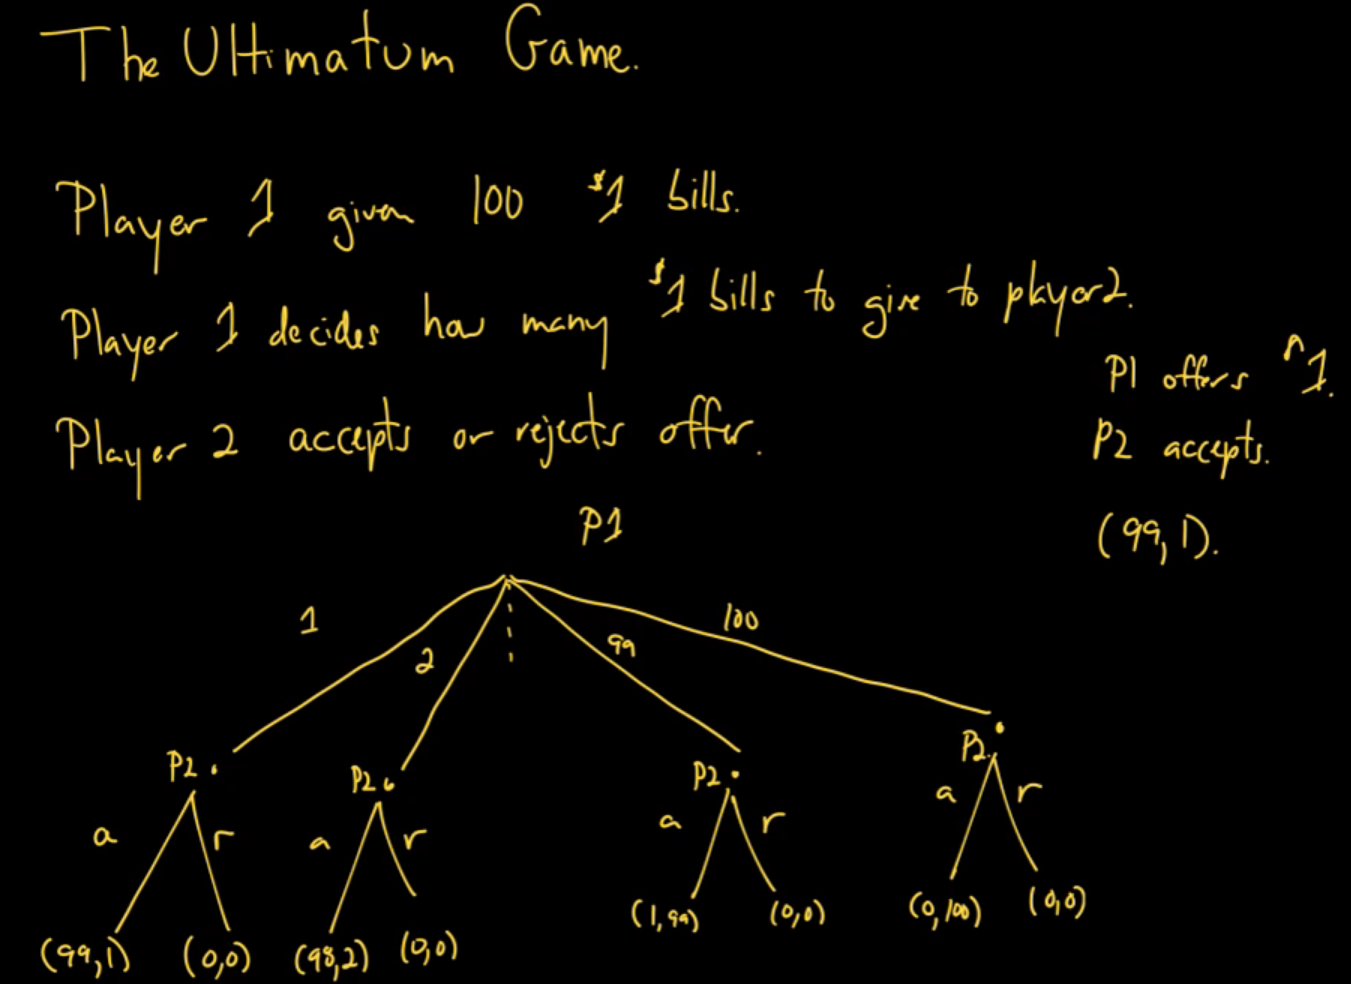 The Ultimatum Game.
Player 1 given 100 $1 bills.
Player 1 decides how many $1 bills to give to player 2.
Player 2 accepts or rejects offer.
P1 offers $1.
P2 accepts.
(99,1).
P1
1 2 99 100
P2 P2 P2 P2
a r a r a r a r
(99,1) (0,0) (98,2) (0,0) (1,99) (0,0) (0,100) (0,0)